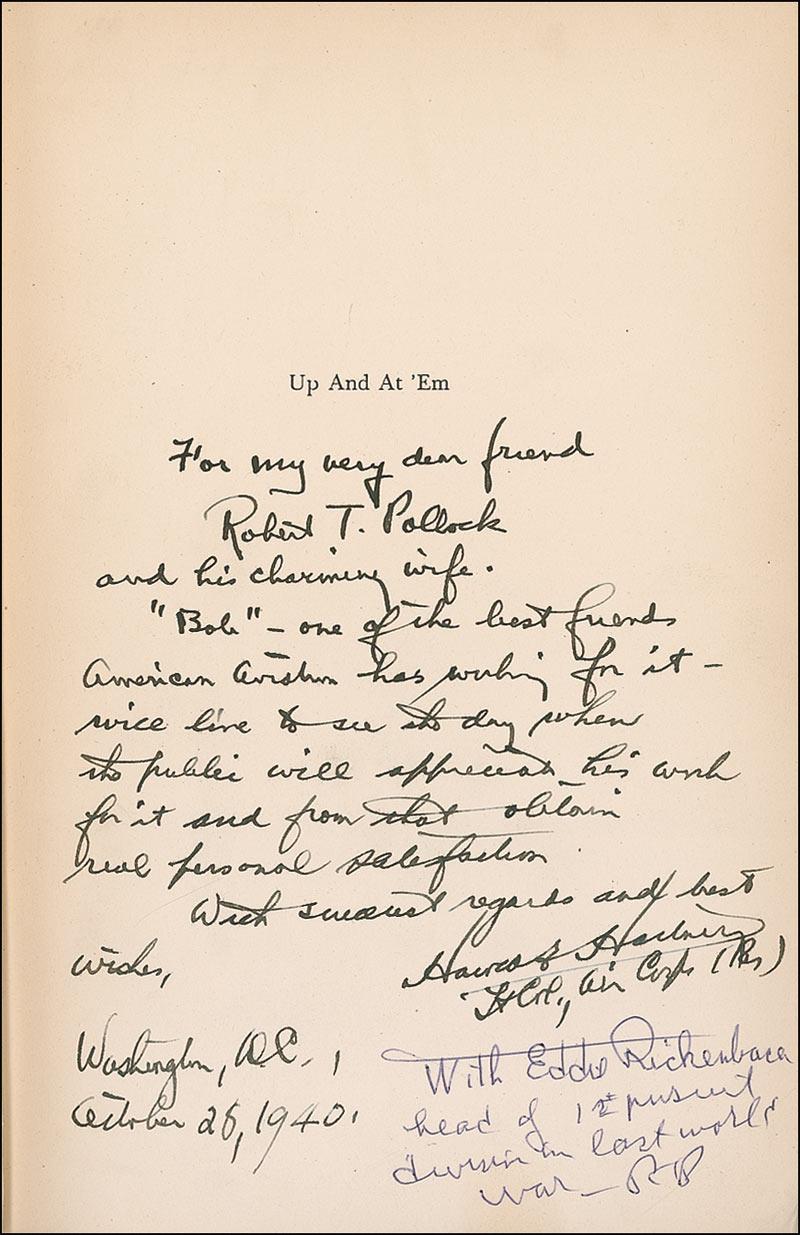 Up And At 'Em
For my very dear friend
Robert T. Pollock
and his charming wife.
"Bob" – one of the best friends
American Aviation has working for it –
will live to see the day when
the public will appreciate his work
for it and from that obtain
real personal satisfaction.
With sincerest regards and best
wishes,
Harold E. Hartney
Lt Col., Air Corps (Res)
Washington, D.C.,
October 25, 1940.
With Eddie Rickenbacker
head of 1st pursuit
division in last world
war – RP